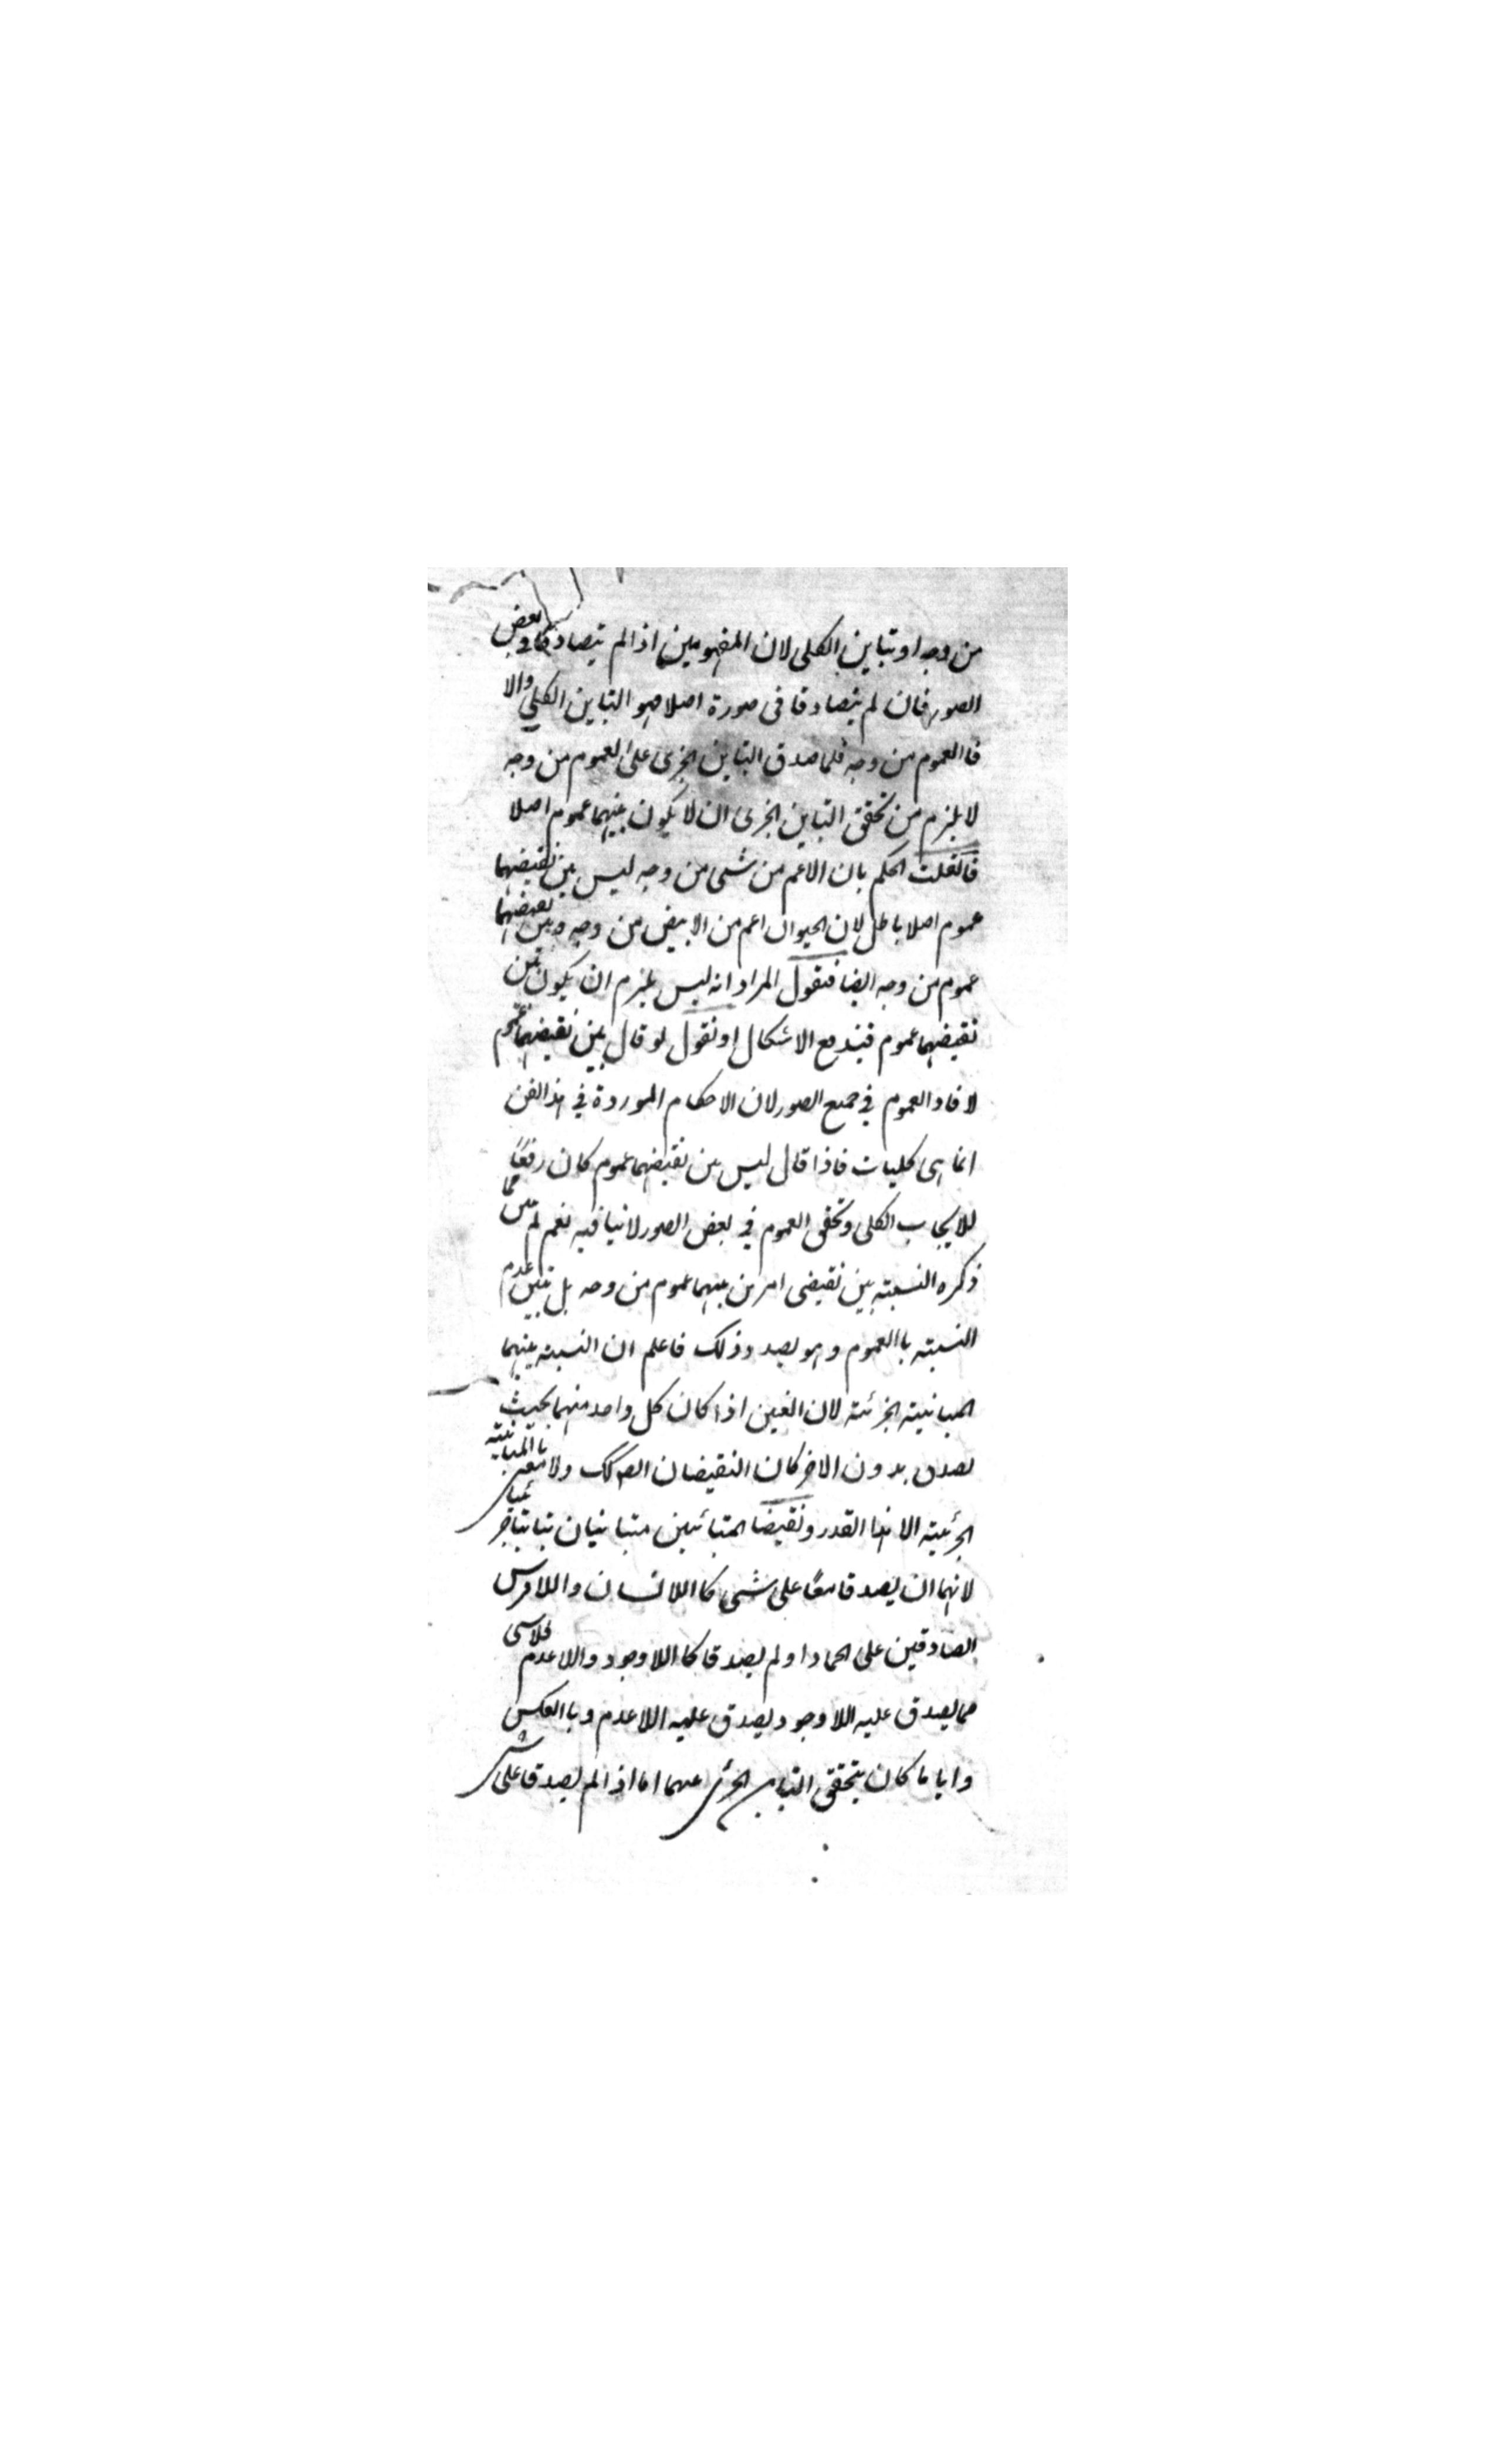 من وجه او تباين الكلى لان المفهومين اذا لم يتصادقا فى بعض
الصور فان لم يتصادقا فى صورة اصلا فهو التباين الكلى والا
فاالعموم من وجه فلما صدق التباين الجزئى على العموم من وجه
لا يلزم من تحقق التباين الجزئى ان لا يكون بينهما عموم اصلا
فانقلت الحكم بان الاعم من شئى من وجه ليس بين نقيضيهما
عموم اصلا باطل لان الحيوان اعم من الابيض من وجه وبين نقيضيهما
عموم من وجه ايضا فنقول المراد انه ليس يلزم ان يكون بين
نقيضيهما عموم فيندفع الاشكال او نقول لو قال بين نقيضيهما عموم
لافاد العموم في جميع الصور لان الاحكام الموردة في هذا الفن
انما هى كليات فاذا قال ليس بين نقيضيهما عموم كان رفعًا
للايجاب الكلى وتحقق العموم في بعض الصور لا ينافيه نعم لم يتبين مما
ذكره النسبته بين نقيضى امرين بينهما عموم من وجه بل تبين عدم
النسبته باالعموم وهو بصدد ذلك فاعلم ان النسبته بينهما
المباينيته الجزئته لان العينين اذا كان كل واحد منهما بحيث
يصدق بدون الاخر كان النقيضان ايضا كك ولا معنى باالمباينيته
الجزئيته الا هذا القدر ونقيضا المتبائنين متباينيان تباينا جزئيا
لانهما ان يصدقا معًا على شئى كااللانسان واللافرس
الصادقين على الجماد او لم يصدقا كااللاوجود واللاعدم فلا شى
مما يصدق عليه اللاوجود يصدق عليه اللاعدم وباالعكس
وايا ما كان يتحقق التباين الجزئى بينهما اما اذا لم يصدقا على شى